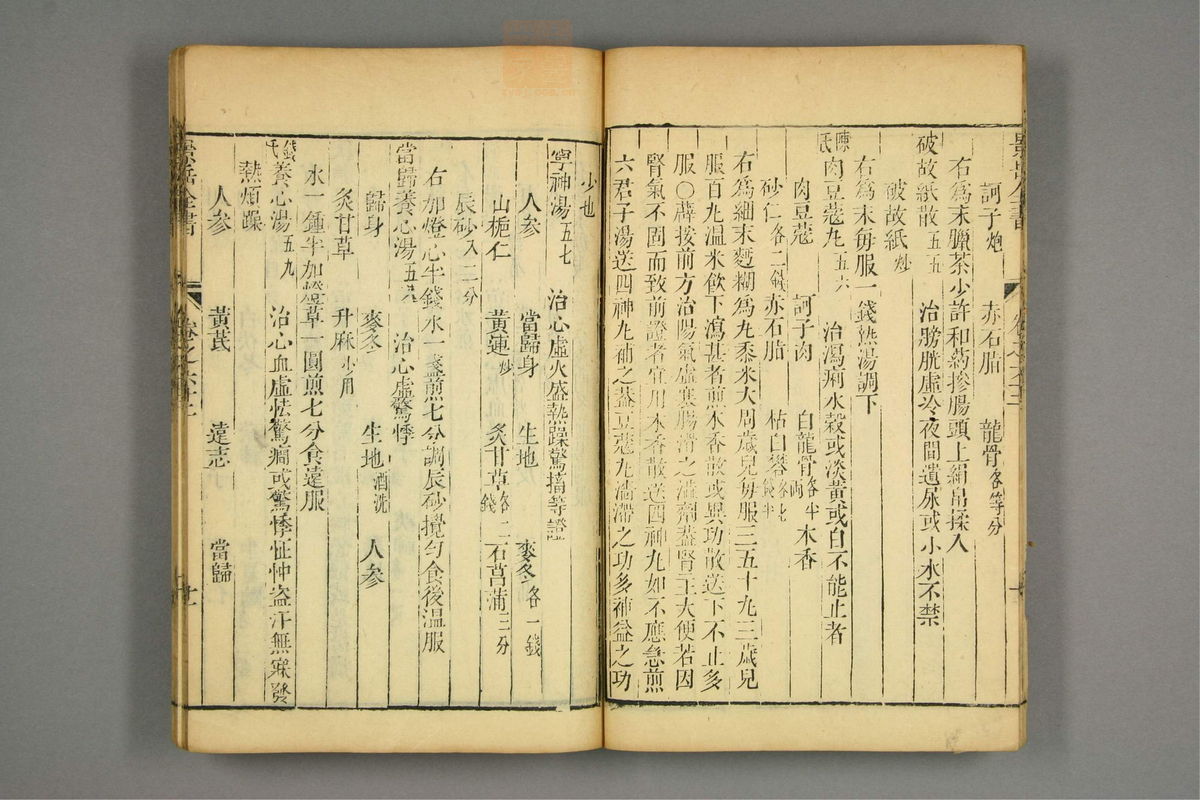 景岳全書
訶子炮 赤石脂 龍骨各等分
右為末臘茶少許和藥摻腸頭上絹帛揉入
破故紙散五五 治膀胱虛冷夜間遺尿或小水不禁
破故紙炒
右為末每服一錢熱湯調下
陳氏肉豆蔻丸五六 治瀉痢水穀或淡黃或白不能止者
肉豆蔻 訶子肉 白龍骨各半兩 木香
砂仁各二錢 赤石脂 枯白礬各七錢半
右為細末麪糊為丸黍米大周歲兒每服三五十丸三歲兒
服百丸溫米飲下瀉甚者煎木香散或異功散送下不止多
服〇薛按前方治陽氣虛寒腸滑之澁劑葢腎主大便若因
腎氣不固而致前證者宜用木香散送四神丸如不應急煎
六君子湯送四神丸補之葢豆蔻丸澁滯之功多補益之功
少也
寧神湯五七 治心虛火盛熱躁驚搐等證
人參 當歸身 生地 麥冬各一錢
山梔仁 黃連炒 炙甘草各二錢 石菖蒲三分
辰砂入二分
右加燈心半錢水一盞煎七分調辰砂攪勻食後溫服
當歸養心湯五八 治心虛驚悸
歸身 麥冬 生地酒洗 人參
炙甘草 升麻少用
水一鍾半加燈草一團煎七分食遠服
錢氏養心湯五九 治心血虛怯驚癎或驚悸怔忡盜汗無寐發
熱煩躁
人參 黃芪 遠志 當歸
景岳全書
卷之六十二